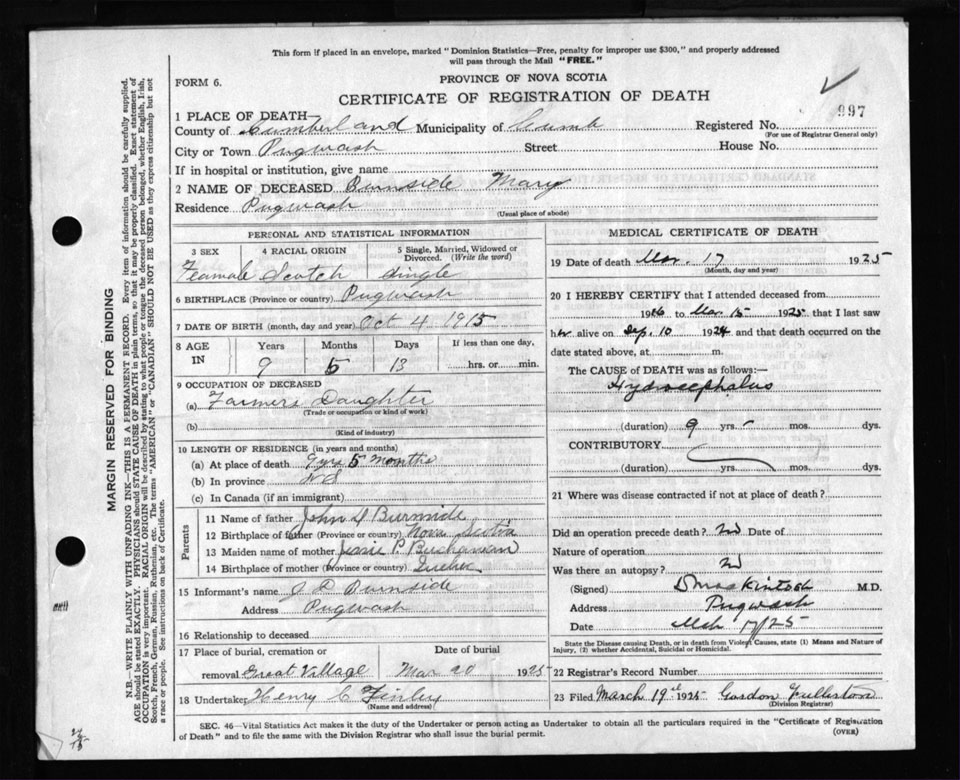 This form if placed in an envelope, marked "Dominion Statistics—Free, penalty for improper use $300," and properly addressed
will pass through the Mail "FREE."
FORM 6.
PROVINCE OF NOVA SCOTIA
CERTIFICATE OF REGISTRATION OF DEATH
997
1 PLACE OF DEATH—
County of Cumberland Municipality of Cumb Registered No.
(For use of Registrar General only)
City or Town Pugwash Street House No.
If in hospital or institution, give name
2 NAME OF DECEASED Burnside Mary
Residence Pugwash
(Usual place of abode)
PERSONAL AND STATISTICAL INFORMATION
3 SEX 4 RACIAL ORIGIN 5 Single, Married, Widowed or Divorced. (Write the word)
Feamale Scotch Single
6 BIRTHPLACE (Province or country) Pugwash
7 DATE OF BIRTH (month, day and year) Oct 4 1915
8 AGE IN Years Months Days If less than one day,
9 5 13 hrs. or min.
9 OCCUPATION OF DECEASED
(a) Farmers Daughter
(Trade or occupation or kind of work)
(b)
(Kind of industry)
10 LENGTH OF RESIDENCE (in years and months)
(a) At place of death 9 yrs 5 months
(b) In province N S
(c) In Canada (if an immigrant)
Parents
11 Name of father John D Burnside
12 Birthplace of father (Province or country) Nova Scotia
13 Maiden name of mother Jessie P Buchanan
14 Birthplace of mother (Province or country) Quebec
15 Informant's name J D Burnside
Address Pugwash
16 Relationship to deceased
17 Place of burial, cremation or removal Great Village Date of burial Mar 20 1925
18 Undertaker Henry C Finley
(Name and address)
MEDICAL CERTIFICATE OF DEATH
19 Date of death Mar. 17 1925
(Month, day and year)
20 I HEREBY CERTIFY that I attended deceased from
1916 to Mar 15 1925, that I last saw
her alive on Sep. 10 1924 and that death occurred on the
date stated above, at m.
The CAUSE of DEATH was as follows:—
Hydrocephalus
(duration) 9 yrs. mos. dys.
CONTRIBUTORY
(duration) yrs. mos. dys.
21 Where was disease contracted if not at place of death?
Did an operation precede death? No Date of
Nature of operation
Was there an autopsy? No
(Signed) D Mackintosh M.D.
Address Pugwash
Date Mch 17/25
State the Disease causing Death, or in death from Violent Causes, state (1) Means and Nature of
Injury, (2) whether Accidental, Suicidal or Homicidal.
22 Registrar's Record Number
23 Filed March 19 1925 Gordon Fullerton
(Division Registrar)
SEC. 46—Vital Statistics Act makes it the duty of the Undertaker or person acting as Undertaker to obtain all the particulars required in the "Certificate of Registration
of Death" and to file the same with the Division Registrar who shall issue the burial permit.
(OVER)
MARGIN RESERVED FOR BINDING
N.B.—WRITE PLAINLY WITH UNFADING INK—THIS IS A PERMANENT RECORD. Every item of information should be carefully supplied.
AGE should be stated EXACTLY. PHYSICIANS should STATE CAUSE OF DEATH in plain terms, so that it may be properly classified. Exact statement of
OCCUPATION is very important. RACIAL ORIGIN will be described by stating to what people or tongue the deceased person belonged, whether English, Irish,
Scotch, French, German, Russian, Ruthenian, etc. The terms "AMERICAN" or "CANADIAN" SHOULD NOT BE USED as they express citizenship but not
a race or people. See instructions on back of Certificate.